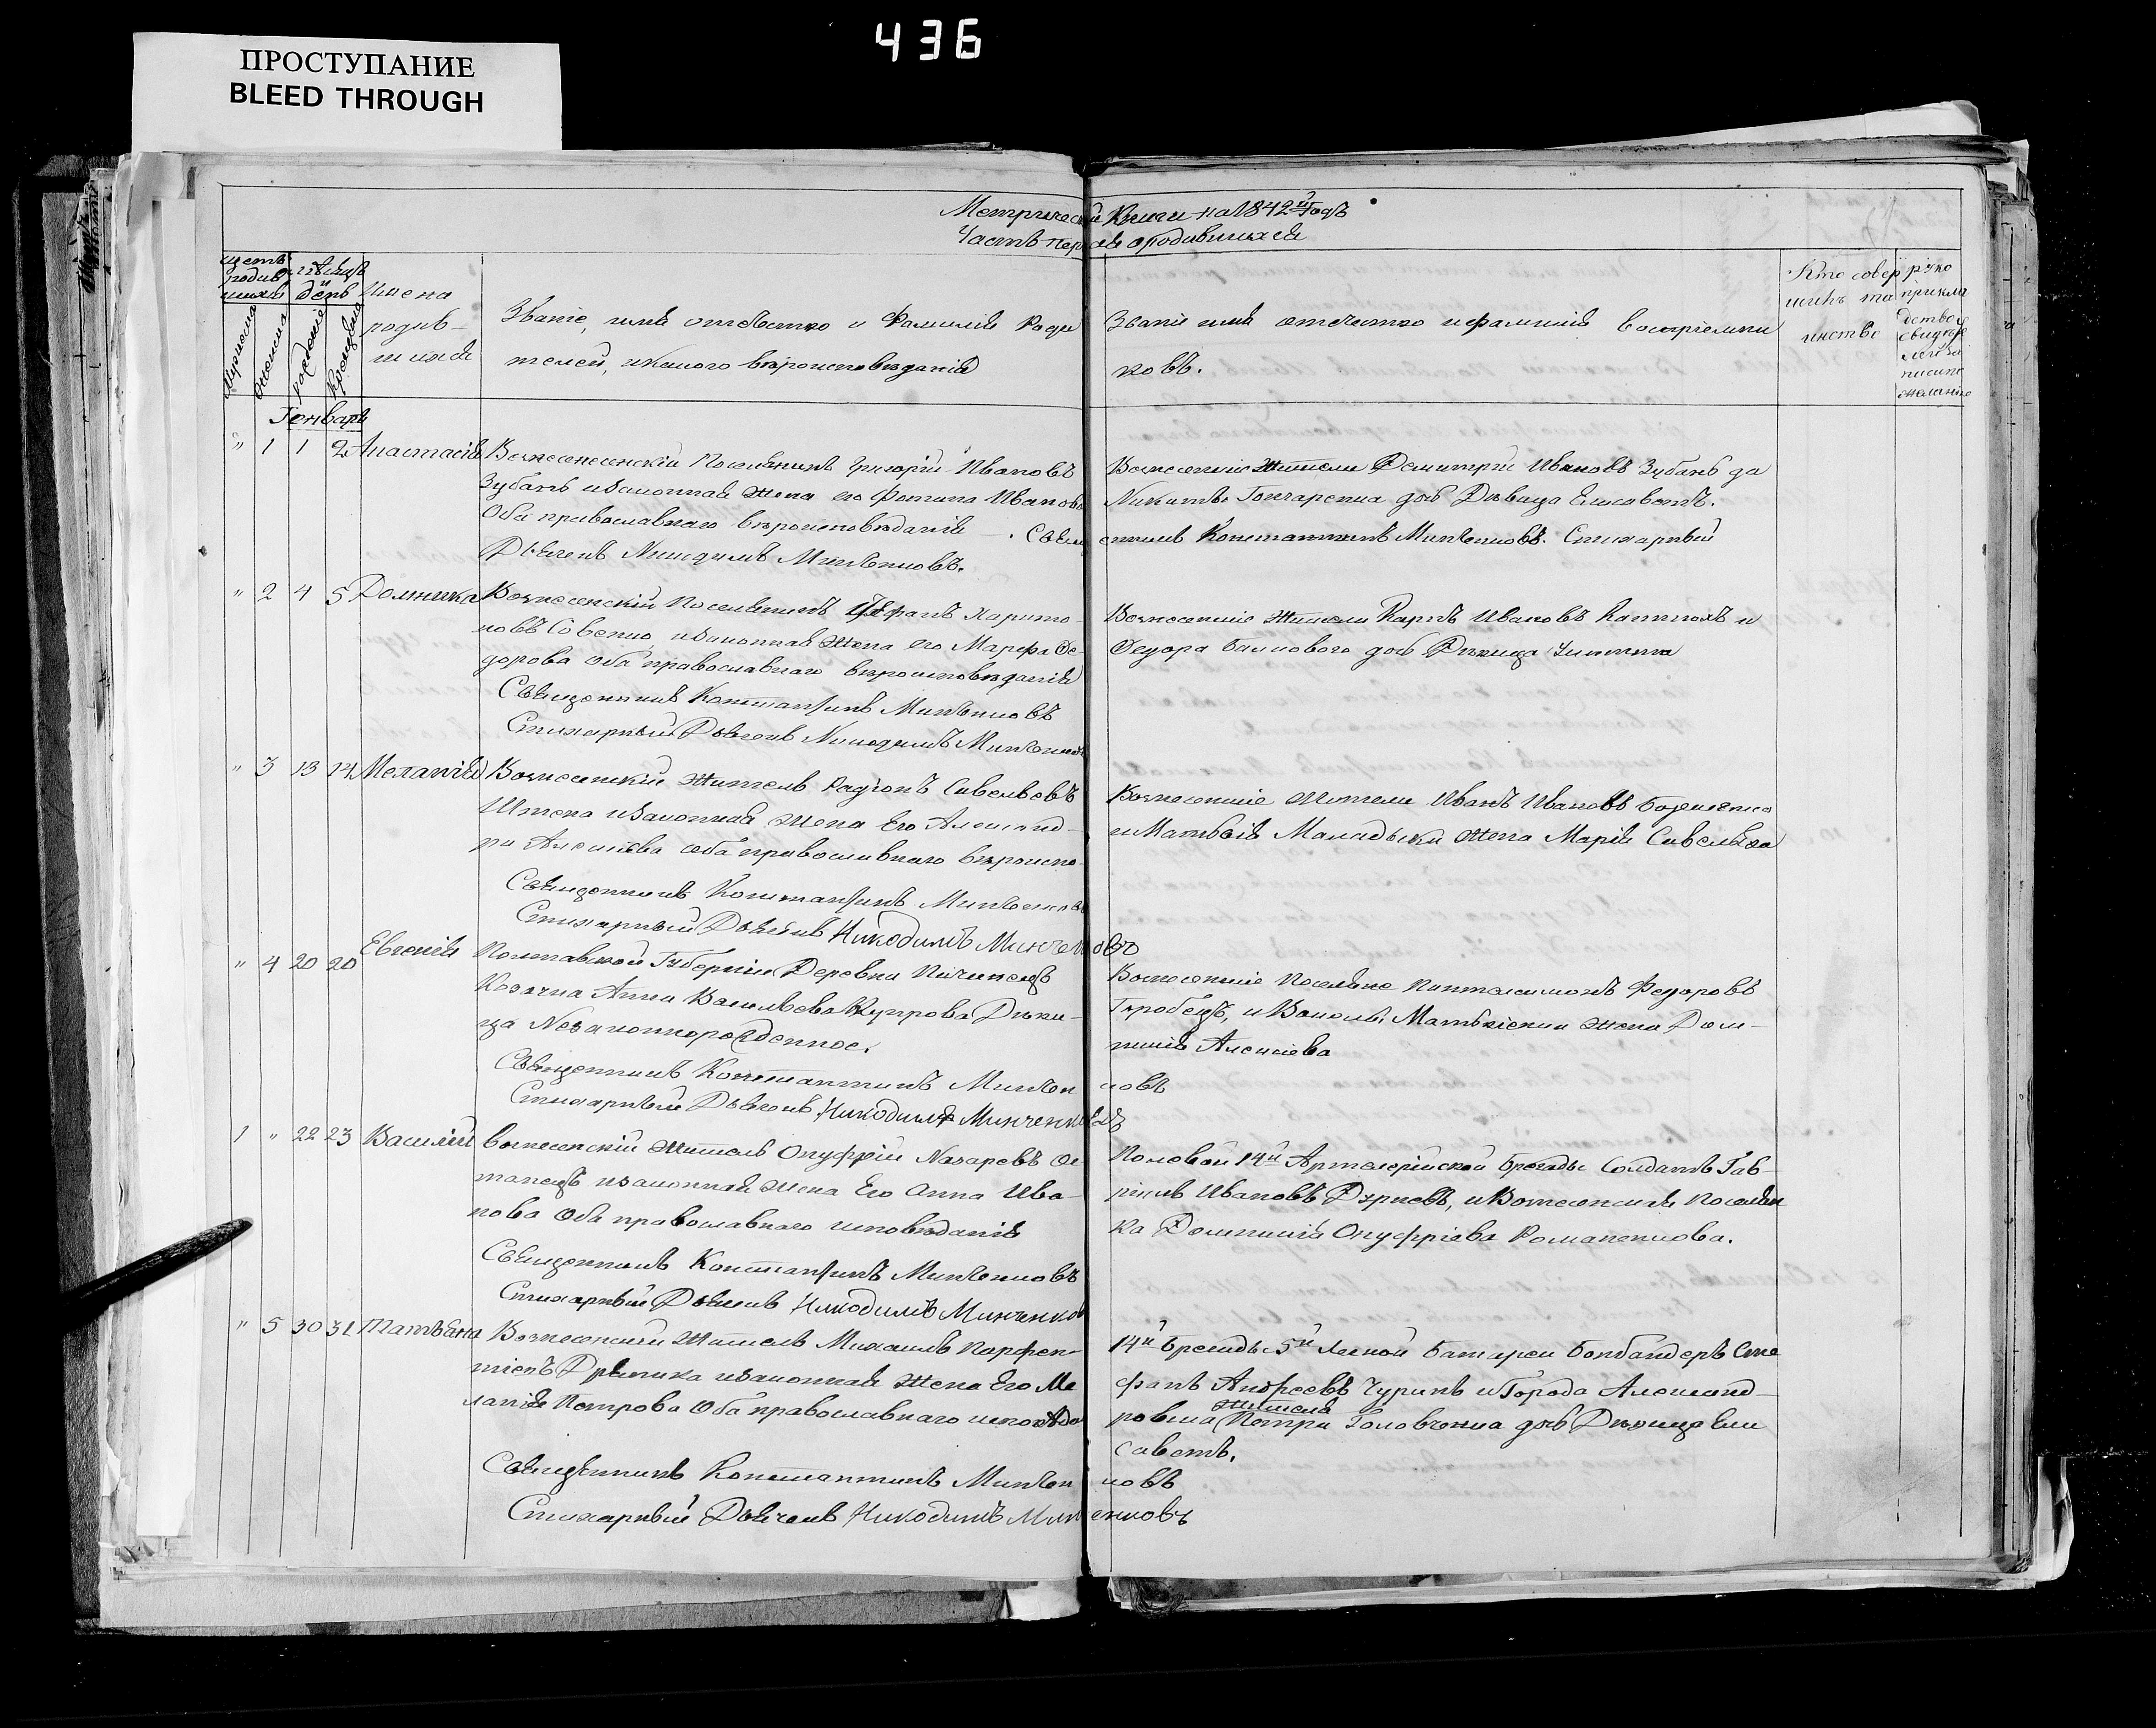 436
ПРОСТУПАНИЕ
BLEED THROUGH
Метрической Книги на 1842й Годъ
Часть первая о родившихся
Имена
родив-
шихся
Званіе, имя отчество и Фамилія Роди
телей, и какого вѣроисповѣданія
Званіе имя отечество и фамилія воспріемни
ковъ.
Кто совер
шилъ та
инство
Генварь
" 1 1 2 Анастасія Вознесенскій Поселянинъ Григорій Ивановъ
Зубань и законная жена его Фотина Иванова
Оба православнаго вѣроисповѣданія
Дьячокъ Никодимъ Минченковъ.
Вознесенскіе Жители Димитрій Ивановъ Зубань да
Никиты Гончаренка дочь Дѣвица Елисаветъ.
Священникъ Константинъ Минченковъ. Стихарный
" 2 4 5 Домникія Вознесенскій Поселянинъ Стефанъ Харито-
новъ Совенко, и законная Жена его Марфа Ѳе-
дорова оба православнаго вѣроисповѣданія
Священникъ Константинъ Минченковъ
Стихарный Дьячокъ Никодимъ Минченковъ
Вознесенскіе Жители Карпъ Ивановъ и
Ѳедора дочь Дѣвица
" 3 13 14 Меланія Вознесенскій Житель Радіонъ Савельевъ
и законная Жена Его Александ-
ра Алексѣева оба православнаго вѣроиспо-
Священникъ Константинъ Минченковъ
Стихарный Дьячокъ Никодимъ Минченковъ
Вознесенскіе Жители Иванъ Ивановъ
и Матвѣя Жена Марія Савельева
" 4 20 20 Евгенія Полтавской Губерніи Деревни
Козачка Анна Васильева Дѣви-
ца Незаконнорожденное.
Священникъ Константинъ Минченковъ
Стихарный Дьячокъ Никодимъ Минченковъ
Вознесенскіе Поселяне Пантелеимонъ Федоровъ
жена Дом-
никія Алексіева
1 " 22 23 Василій Вознесенскій Житель Онуфрій Назаровъ Ос-
тапецъ и законная Жена Его Анна Ива-
нова Оба православнаго исповѣданія
Священникъ Константинъ Минченковъ
Стихарный Дьячокъ Никодимъ Минченков
14й Артелерійской Бригады Солдатъ Гав-
ріилъ Ивановъ и Вознесенская Поселян
ка Домникія Онуфріева Романенкова.
" 5 30 31 Татьяна Вознесенскій Житель Михаилъ Парфен-
тіевъ и законная Жена Его Ме
ланія Петрова Оба православнаго исповѣда
Священникъ Константинъ Минченковъ
Стихарный Дьячокъ Никодимъ Минченковъ
14й Бригады 5й Легкой Батареи Бонбандеръ Сте
фанъ Андреевъ Чуринъ и Города Александ-
жителя
ровка Петра Головченка дочь Дѣвица Ели
саветъ.